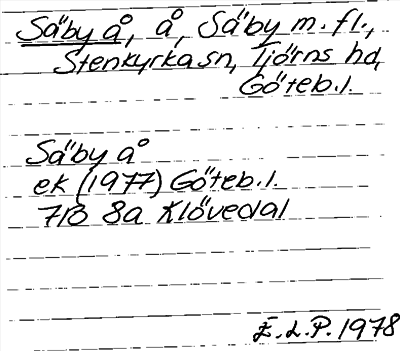 Säby å, å, Säby m. fl.,
Stenkyrka sn, Tjörns hd,
Göteb. l.
Säby å
ek (1977) Göteb. l.
7B 8a Klövedal
E. L. P. 1978